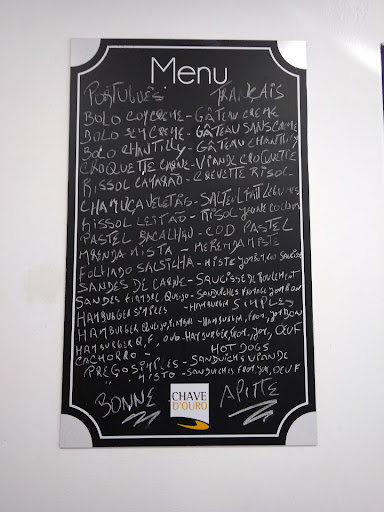 Menu
PORTUGUÊS FRANÇAIS
BOLO COM CREME - GÂTEAU CREME
BOLO SEM CREME - GÂTEAU SANS CREME
BOLO CHANTILLY - GÂTEAU CHANTILLY
CROQUETTE CARNE - VIANDE CROQUETTE
RISSOL CAMARÃO - CREVETTE RISSOL
CHAMUÇA VEGETAIS - LEGUMES
RISSOL LEITÃO - RISSOL JEUNE COCHON
PASTEL BACALHAU - COD PASTEL
MERENDA MISTA - MERENDA MISTE
FOLHADO SALSICHA - SAUCISSE
SANDES DE CARNE - SAUCISSE DE
SANDES FIAMBRE, QUEIJO - SANDWICHES FROMAGE JAMBON
HAMBURGER SIMPLES - HAMBURGER SIMPLES
HAMBURGER QUEIJO, FIAMBRE - HAMBURGER, FROM, JAMBON
HAMBURGER Q, F, OVO - HAMBURGER, FROM, JAM, OEUF
CACHORRO - HOT DOGS
PREGO SIMPLES - SANDWICHE VIANDE
" MISTO - SANDWICHES FROM, JAM, OEUF
BONNE APITTE
CHAVE
D'OURO